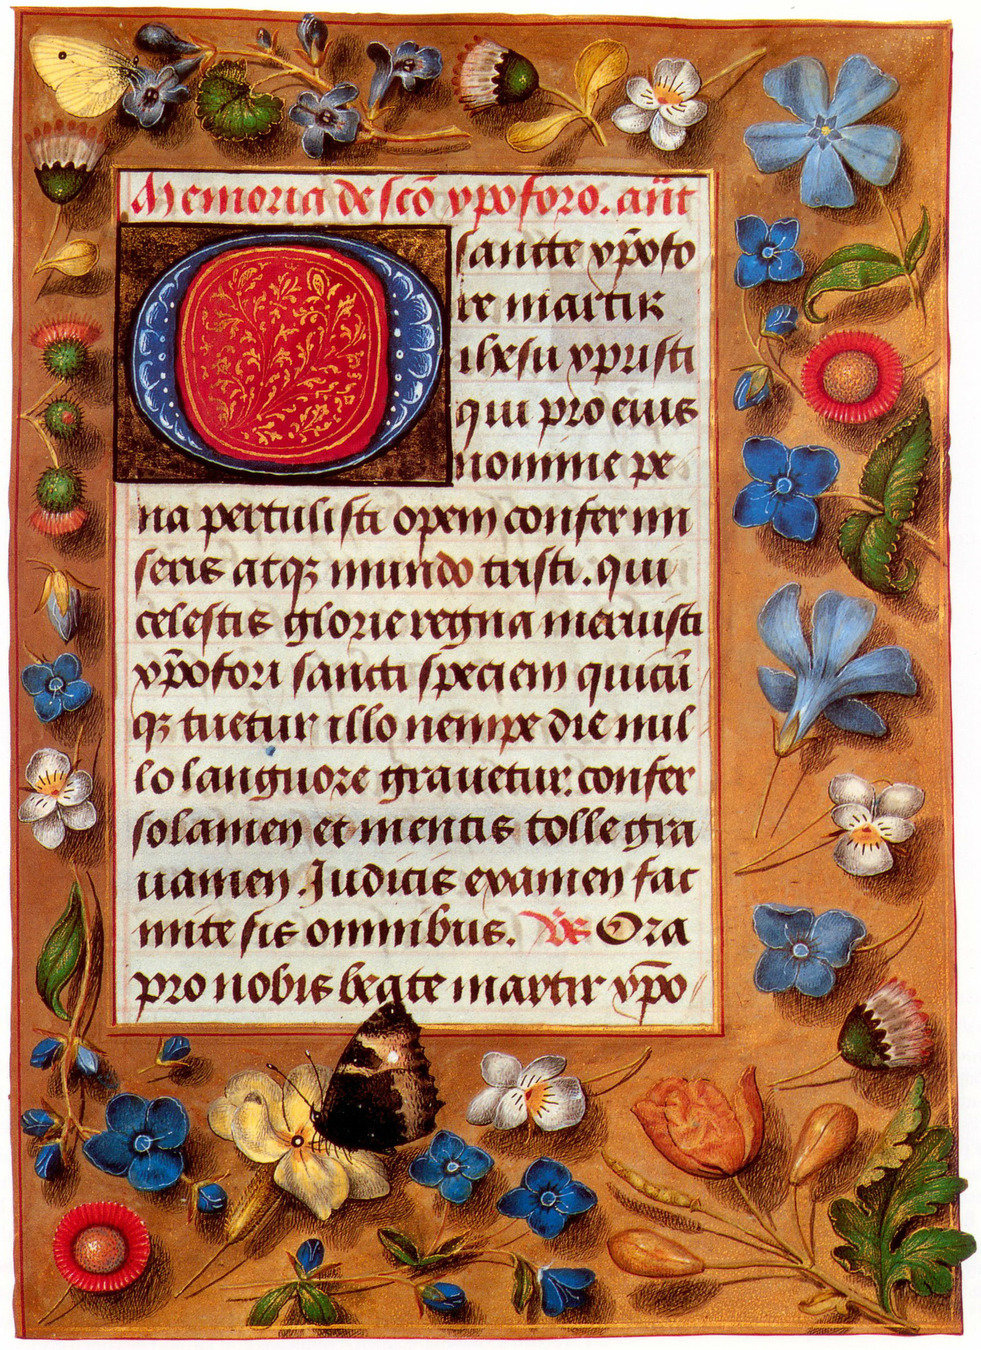 Memoria de sctō xp̄oforo. an̄t
O sancte xp̄ofo
re martir
ihesu xpristi
qui pro eius
nomine pe
na pertulisti opem confer mi
seris atqz mundo tristi. qui
celestis glorie regna meruisti
xp̄ofori sancti speciem quicū
qz tuetur illo nempe die nul
lo languore grauetur: confer
solamen et mentis tolle gra
uamen. Iudicis examen fac
mite sis omnibus. V̄s Ora
pro nobis beate martir xp̄o